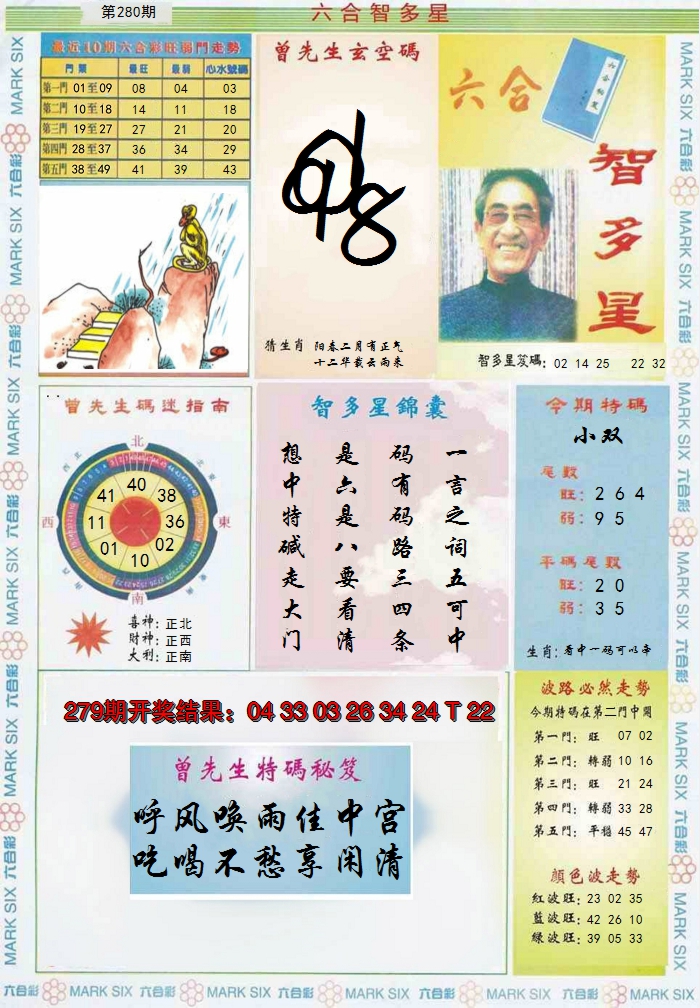 第280期
六合智多星
最近10期六合彩旺弱門走勢
門類 最旺 最弱 心水號碼
第一門 01至09 08 04 03
第二門 10至18 14 11 18
第三門 19至27 27 21 20
第四門 28至37 36 34 29
第五門 38至49 41 39 43
曾先生玄空碼
猜生肖 阳春二月有正气
十二华载云雨来
六合
智多星
智多星笈碼: 02 14 25 22 32
曾先生碼迷指南
北
西
東
南
40
38
36
02
10
01
11
41
喜神: 正北
財神: 正西
大利: 正南
智多星錦囊
一言之词五可中
码有码路三四条
是六是八要看清
想中特碱走大门
今期特碼
小双
尾數
旺: 2 6 4
弱: 9 5
平碼尾數
旺: 2 0
弱: 3 5
生肖: 看中一码可以串
279期开奖结果: 04 33 03 26 34 24 T 22
曾先生特碼秘笈
呼风唤雨佳中宫
吃喝不愁享闲清
波路必然走勢
今期特碼在第二門中開
第一門: 旺 07 02
第二門: 轉弱 10 16
第三門: 旺 21 24
第四門: 轉弱 33 28
第五門: 平穩 45 47
顏色波走勢
紅波旺: 23 02 35
藍波旺: 42 26 10
綠波旺: 39 05 33
六合彩 MARK SIX 六合彩 MARK SIX 六合彩 MARK SIX 六合彩 MARK SIX